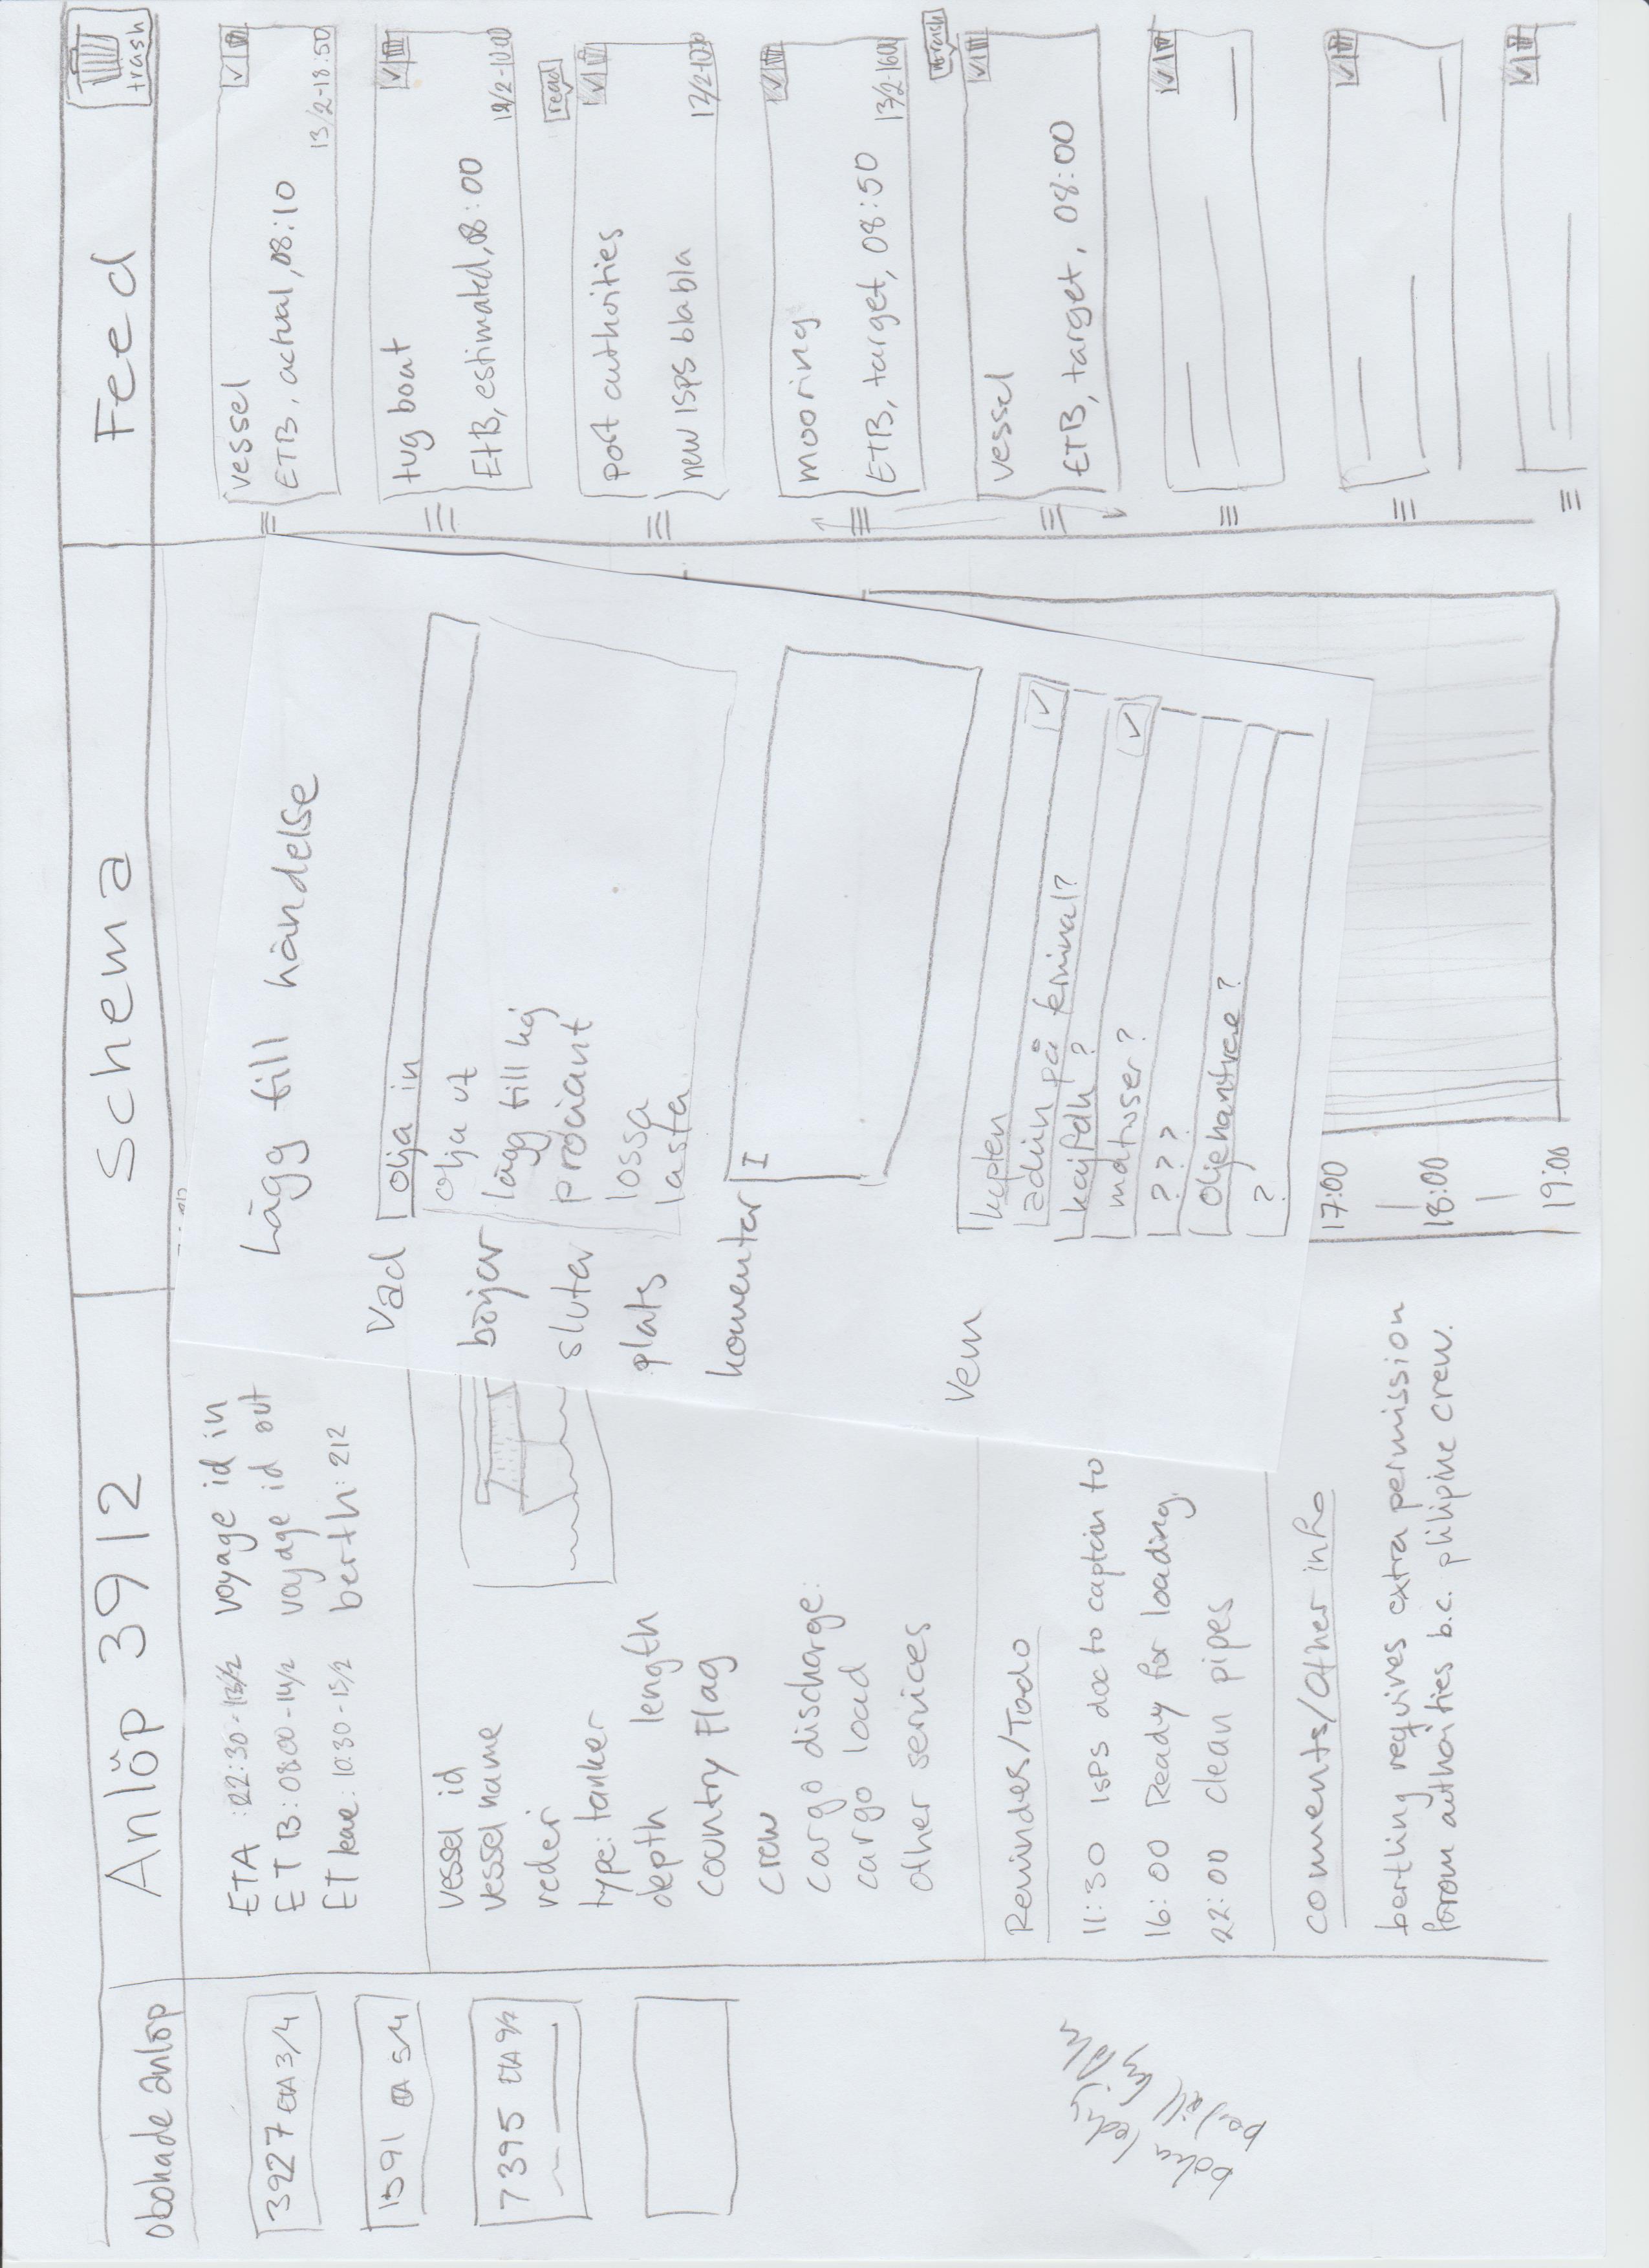 obokade anlöp
3927 ETA 3/4
1591 ETA 5/4
7395 ETA 9/2
boka
Anlöp 3912
ETA : 22:30 - 13/2 voyage id in
ETB : 0800 - 14/2 voyage id out
ET leave : 10:30 - 15/2 berth : 212
vessel id
vessel name
reder
type: tanker
depth length
country Flag
crew
cargo discharge:
cargo load
other services
Reminders/Todo
11:30 ISPS doc to captain to
16:00 Ready for loading.
22:00 clean pipes
comments/other info
berthing requires extra permission
from authorities b.c. philipine crew.
Schema
Lägg till händelse
Vad
olja in
olja ut
lägg till kaj
proviant
lossa
lasta
börjar
slutar
plats
komentar
I
Vem
kapten
admin på terminal?
kajfolk?
matuser?
???
Oljehantvere?
?
17:00
18:00
19:00
Feed
trash
vessel
ETB, actual, 08:10
13/2-18:50
tug boat
ETB, estimated, 08:00
read
port authorities
new ISPS blabla
mooring
ETB, target, 08:50
13/2-1600
trash
vessel
ETB, target, 08:00